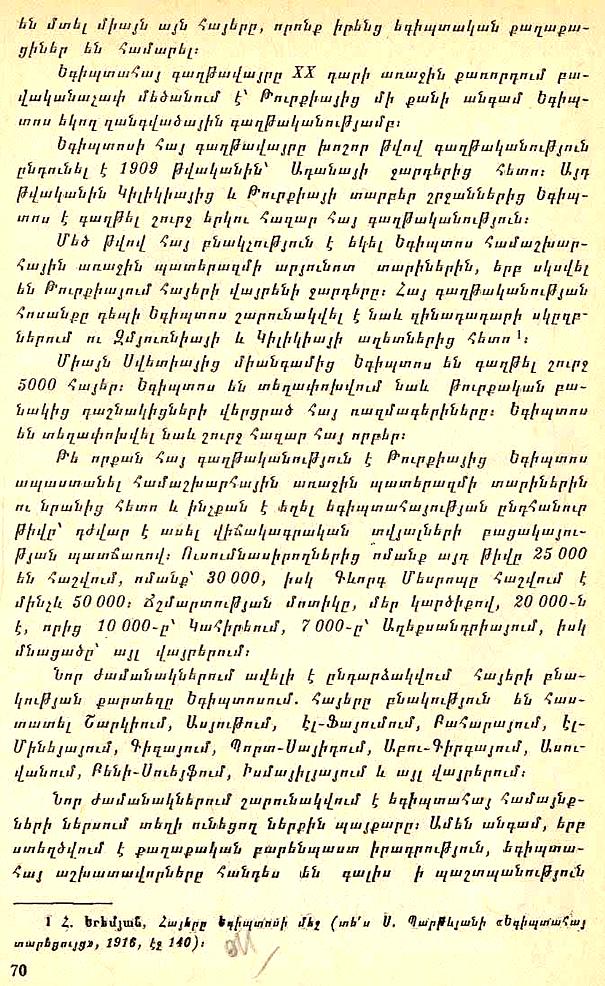 են մտել միայն այն հայերը, որոնք իրենց եգիպտական քաղաքա-
ցիներ են համարել։
Եգիպտահայ գաղթավայրը XX դարի առաջին քառորդում բա-
վականաչափ մեծանում է՝ Թուրքիայից մի քանի անգամ Եգիպ-
տոս եկող զանգվածային գաղթականությամբ։
Եգիպտոսի հայ գաղթավայրը խոշոր թվով գաղթականություն
ընդունել է 1909 թվականին՝ Ադանայի ջարդերից հետո։ Այդ
թվականին Կիլիկիայից և Թուրքիայի տարբեր շրջաններից Եգիպ-
տոս է գաղթել շուրջ երկու հազար հայ գաղթականություն։
Մեծ թվով հայ բնակչություն է եկել Եգիպտոս համաշխար-
հային առաջին պատերազմի արյունոտ տարիներին, երբ սկսվել
են Թուրքիայում հայերի վայրենի ջարդերը։ Հայ գաղթականության
հոսանքը դեպի Եգիպտոս շարունակվել է նաև զինադադարի սկըզբ-
ներում ու Զմյուռնիայի և Կիլիկիայի աղետներից հետո ¹։
Միայն Սվետիայից միանգամից Եգիպտոս են գաղթել շուրջ
5000 հայեր։ Եգիպտոս են տեղափոխվում նաև թուրքական բա-
նակից դաշնակիցների վերցրած հայ ռազմագերիները։ Եգիպտոս
են տեղափոխվել նաև շուրջ հազար հայ որբեր։
Թե որքան հայ գաղթականություն է Թուրքիայից Եգիպտոս
ապաստանել համաշխարհային առաջին պատերազմի տարիներին
ու նրանից հետո և ինչքան է եղել եգիպտահայության ընդհանուր
թիվը՝ դժվար է ասել վիճակագրական տվյալների բացակայու-
թյան պատճառով։ Ուսումնասիրողներից ոմանք այդ թիվը 25 000
են հաշվում, ոմանք՝ 30 000, իսկ Գևորգ Մեսրոպը հաշվում է
մինչև 50 000։ Ճշմարտության մոտիկը, մեր կարծիքով, 20 000-ն
է, որից 10 000-ը՝ Կահիրեում, 7 000-ը՝ Աղեքսանդրիայում, իսկ
մնացածը՝ այլ վայրերում։
Նոր ժամանակներում ավելի է ընդարձակվում հայերի բնա-
կության քարտեզը Եգիպտոսում. հայերը բնակություն են հաս-
տատել Շարկիում, Ասյութում, Էլ-Ֆայումում, Բահարայում, Էլ-
Մինեյայում, Գիզայում, Պորտ-Սայիդում, Աբու-Գիրգայում, Ասու-
վանում, Բենի-Սուեյֆում, Իսմայիլյայում և այլ վայրերում։
Նոր ժամանակներում շարունակվում է եգիպտահայ համայնք-
ների ներսում տեղի ունեցող ներքին պայքարը։ Ամեն անգամ, երբ
ստեղծվում է քաղաքական բարենպաստ իրադրություն, եգիպտա-
հայ աշխատավորները հանդես են գալիս ի պաշտպանություն
1 Հ. Երեմյան, Հայերը Եգիպտոսի մեջ (տե՛ս Ս. Պարթևյանի «Եգիպտահայ
տարեցույց», 1916, էջ 140)։
70